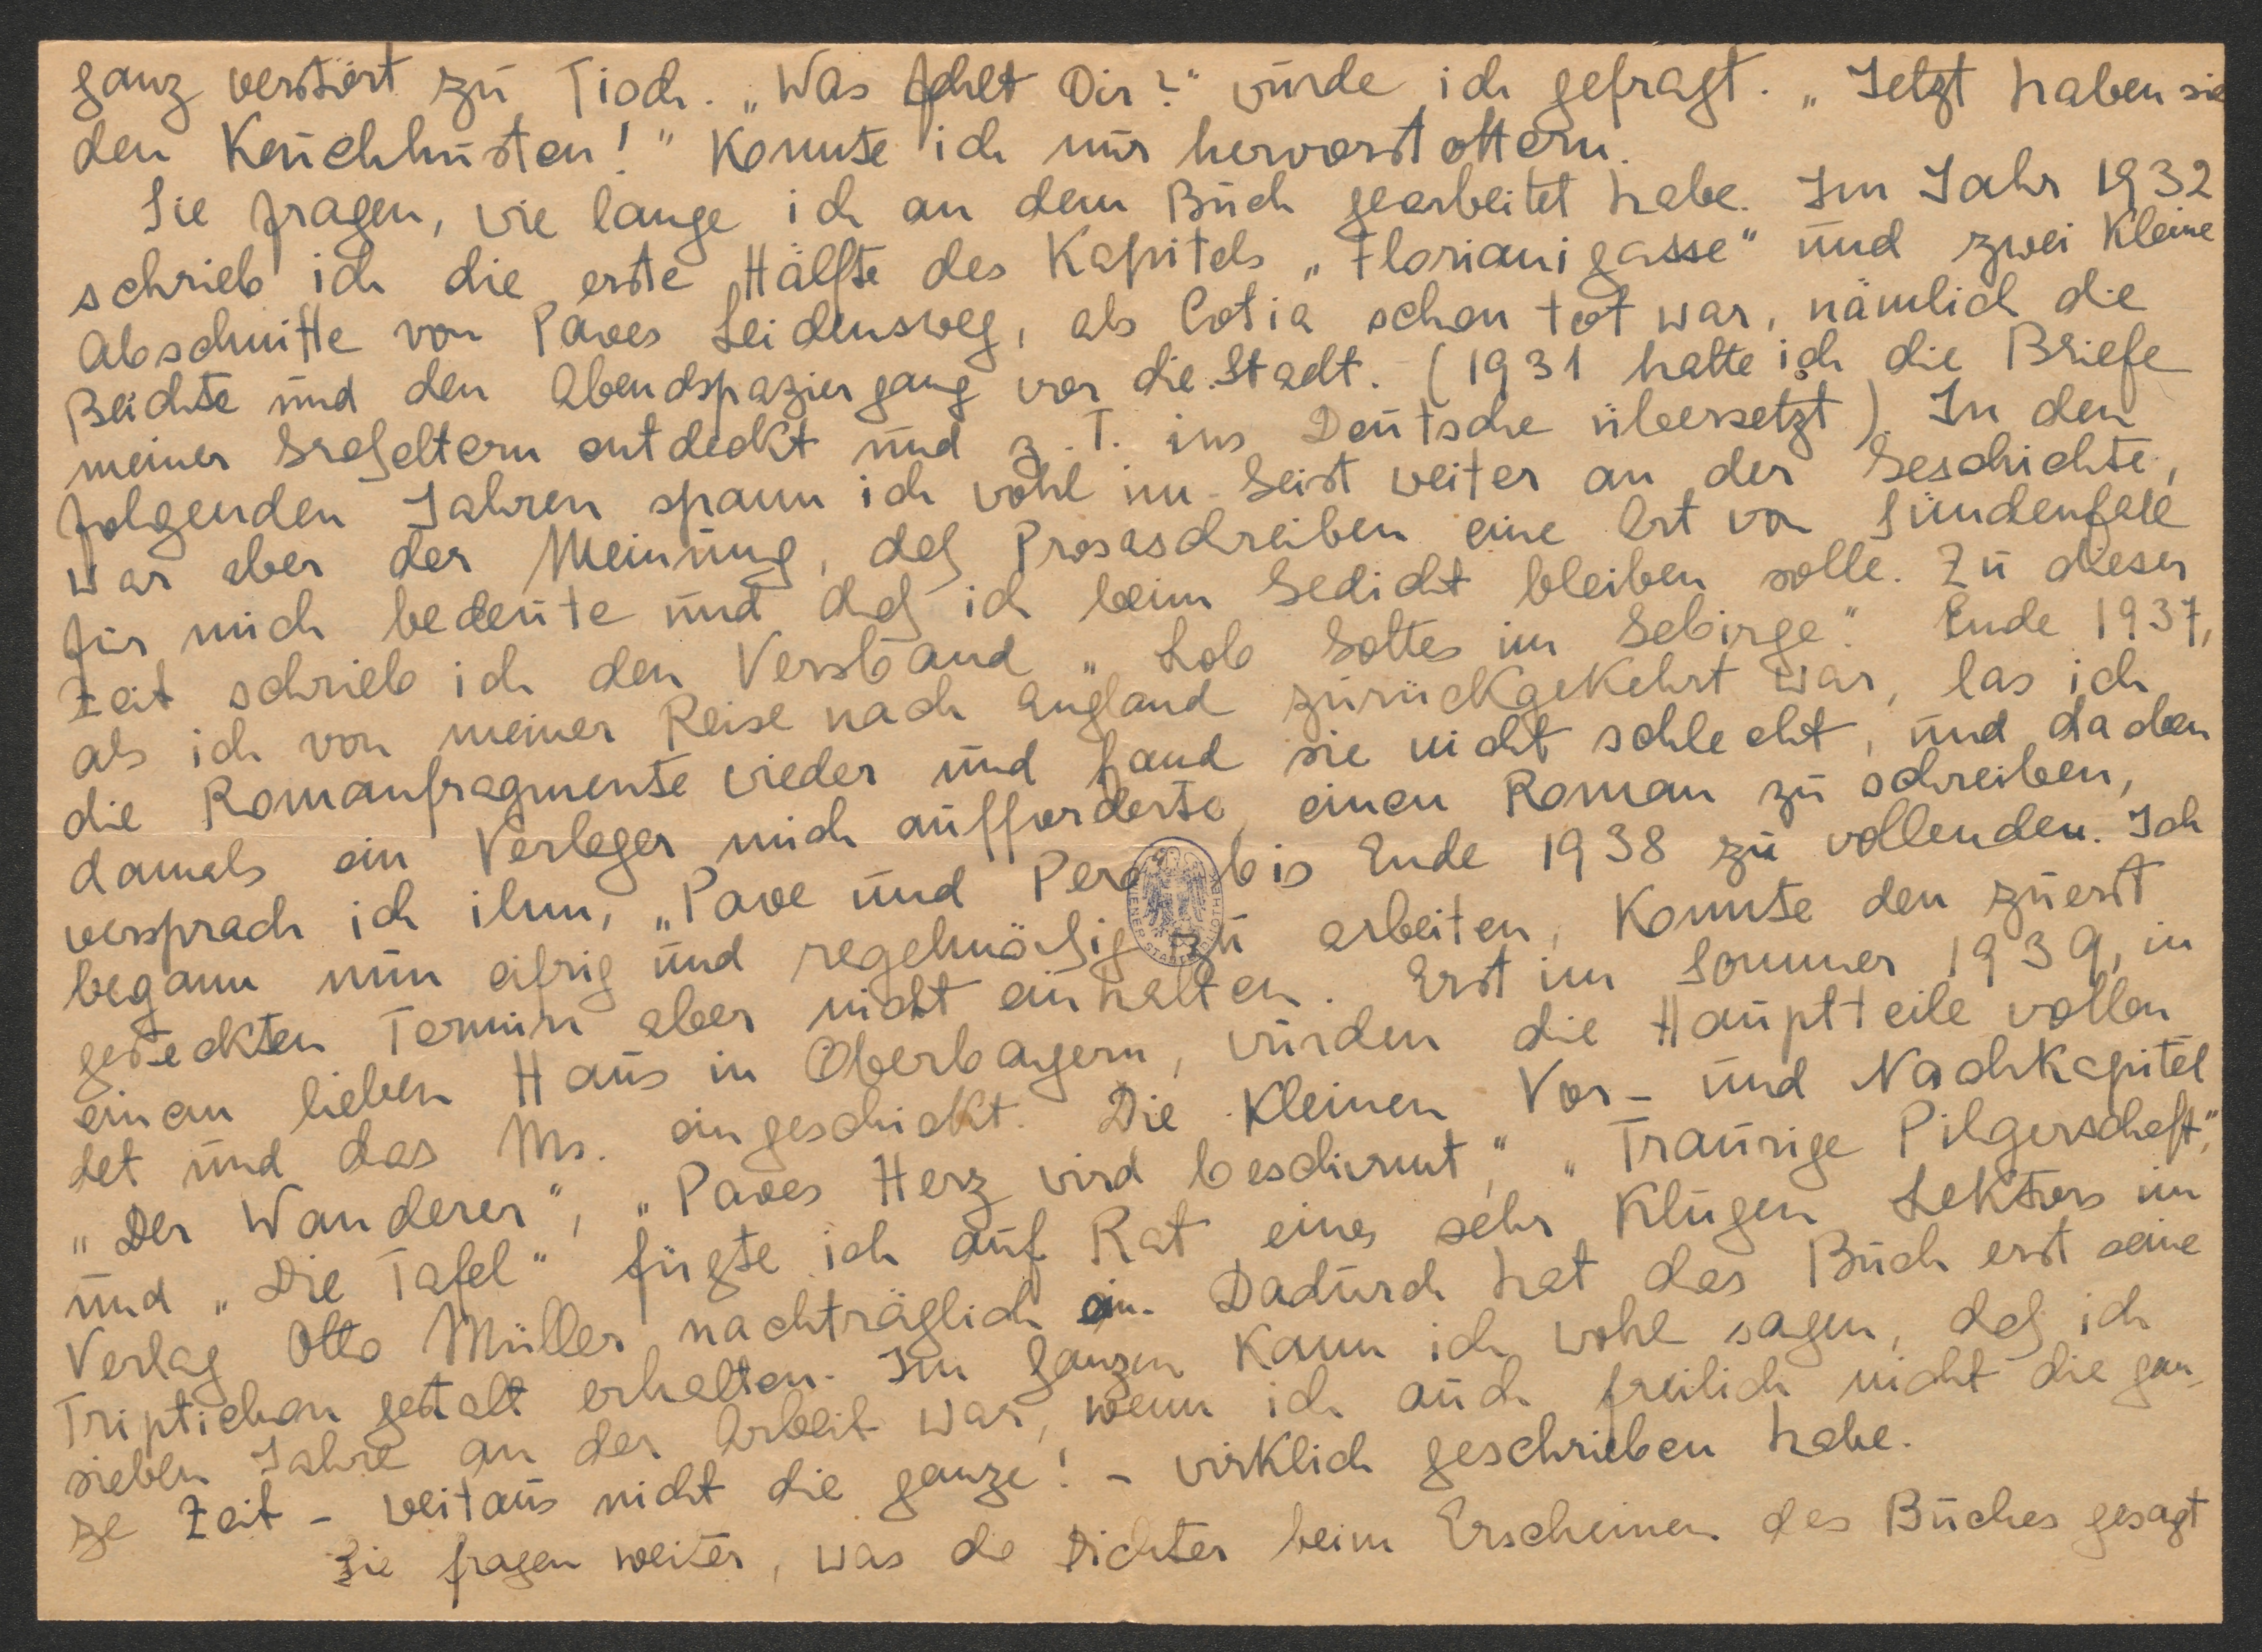 ganz verstört zu Tisch. „Was fehlt Dir?" wurde ich gefragt. „Jetzt haben sie
den Keuchhusten!" konnte ich nur hervorstottern.
Sie fragen, wie lange ich an dem Buch gearbeitet habe. Im Jahr 1932
schrieb ich die erste Hälfte des Kapitels „Florianigasse" und zwei kleine
Abschnitte von Paves Leidensweg, als Cotia schon tot war, nämlich die
Beichte und den Abendspaziergang vor die Stadt. (1931 hatte ich die Briefe
meiner Großeltern entdeckt und z. T. ins Deutsche übersetzt). In den
folgenden Jahren spann ich wohl im Geist weiter an der Geschichte,
war aber der Meinung, daß Prosaschreiben eine Art von Sündenfall
für mich bedeute und daß ich beim Gedicht bleiben solle. Zu dieser
Zeit schrieb ich den Versband „Lob Gottes im Gebirge". Ende 1937,
als ich von meiner Reise nach England zurückgekehrt war, las ich
die Romanfragmente wieder und fand sie nicht schlecht, und da eben
damals ein Verleger mich aufforderte, einen Roman zu schreiben,
versprach ich ihm, „Pave und Pero" bis Ende 1938 zu vollenden. Ich
begann nun eifrig und regelmäßig zu arbeiten, konnte den zuerst
gesteckten Termin aber nicht einhalten. Erst im Sommer 1939, in
einem lieben Haus in Oberbayern, wurden die Hauptteile vollen
det und das Ms. eingeschickt. Die kleinen Vor- und Nachkapitel
„Der Wanderer", „Paves Herz wird beschirmt", „Traurige Pilgerschaft",
und „Die Tafel" fügte ich auf Rat eines sehr klugen Lektors im
Verlag Otto Müller nachträglich ein. Dadurch hat das Buch erst seine
Triptichon gestalt erhalten. Im ganzen kann ich wohl sagen, daß ich
sieben Jahre an der Arbeit war, wenn ich auch freilich nicht die gan-
ze Zeit - weitaus nicht die ganze! - wirklich geschrieben habe.
Sie fragen weiter, was die Dichter beim Erscheinen des Buches gesagt